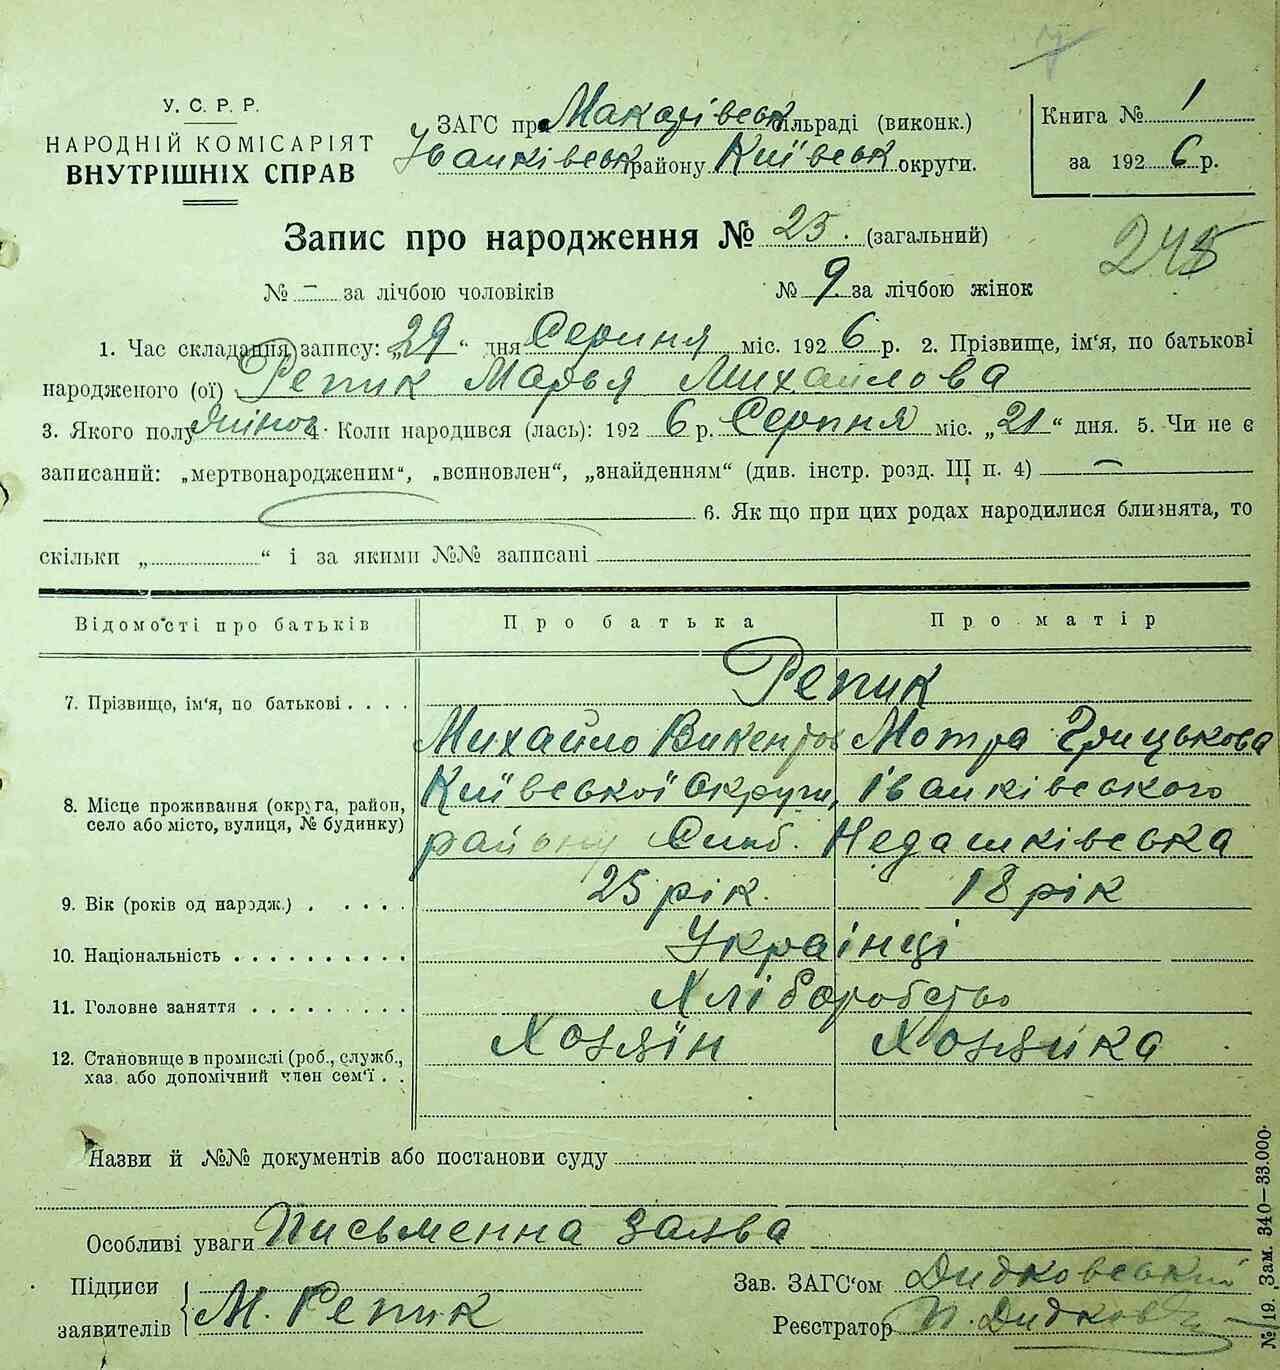 У. С. Р. Р.
НАРОДНІЙ КОМІСАРІЯТ
ВНУТРІШНІХ СПРАВ
ЗАГС при Макарівськ сільраді (виконк.)
Іванківськ району Київськ округи.
Книга № 1
за 1926 р.
Запис про народження № 25. (загальний)
245
№ – за лічбою чоловіків № 9 за лічбою жінок
1. Час складання запису: „29“ дня Серпня міс. 1926 р. 2. Прізвище, ім'я, по батькові
народженого (ої) Репик Марья Михайлова
3. Якого полу жіноч 4. Коли народився (лась): 1926 р. Серпня міс. „21“ дня. 5. Чи не є
записаний: „мертвонародженим“, „всиновлен“, „знайденням“ (див. інстр. розд. III п. 4) —
6. Як що при цих родах народилися близнята, то
скільки „ “ і за якими №№ записані
Відомості про батьків Про батька Про матір
Репик
7. Прізвище, ім'я, по батькові . . . .
Михайло Викентов Мотра Грицькова
Київської Округи, Іванківського
8. Місце проживання (округа, район,
село або місто, вулиця, № будинку)
району Недашківська
9. Вік (років од народж.) . . . . . 25 рік. 18 рік
10. Національність . . . . . . . . . . Українці
11. Головне заняття . . . . . . . . . Хліборобство
12. Становище в промислі (роб., служб., Хозяїн Хозяйка
хаз. або допомічний член сем'ї . .
Назви й №№ документів або постанови суду
Особливі уваги Письменна заява
Підписи
заявителів М. Репик
Зав. ЗАГС'ом Дидковський
Реєстратор П. Дидков
№ 19. Зам. 340—33.000.